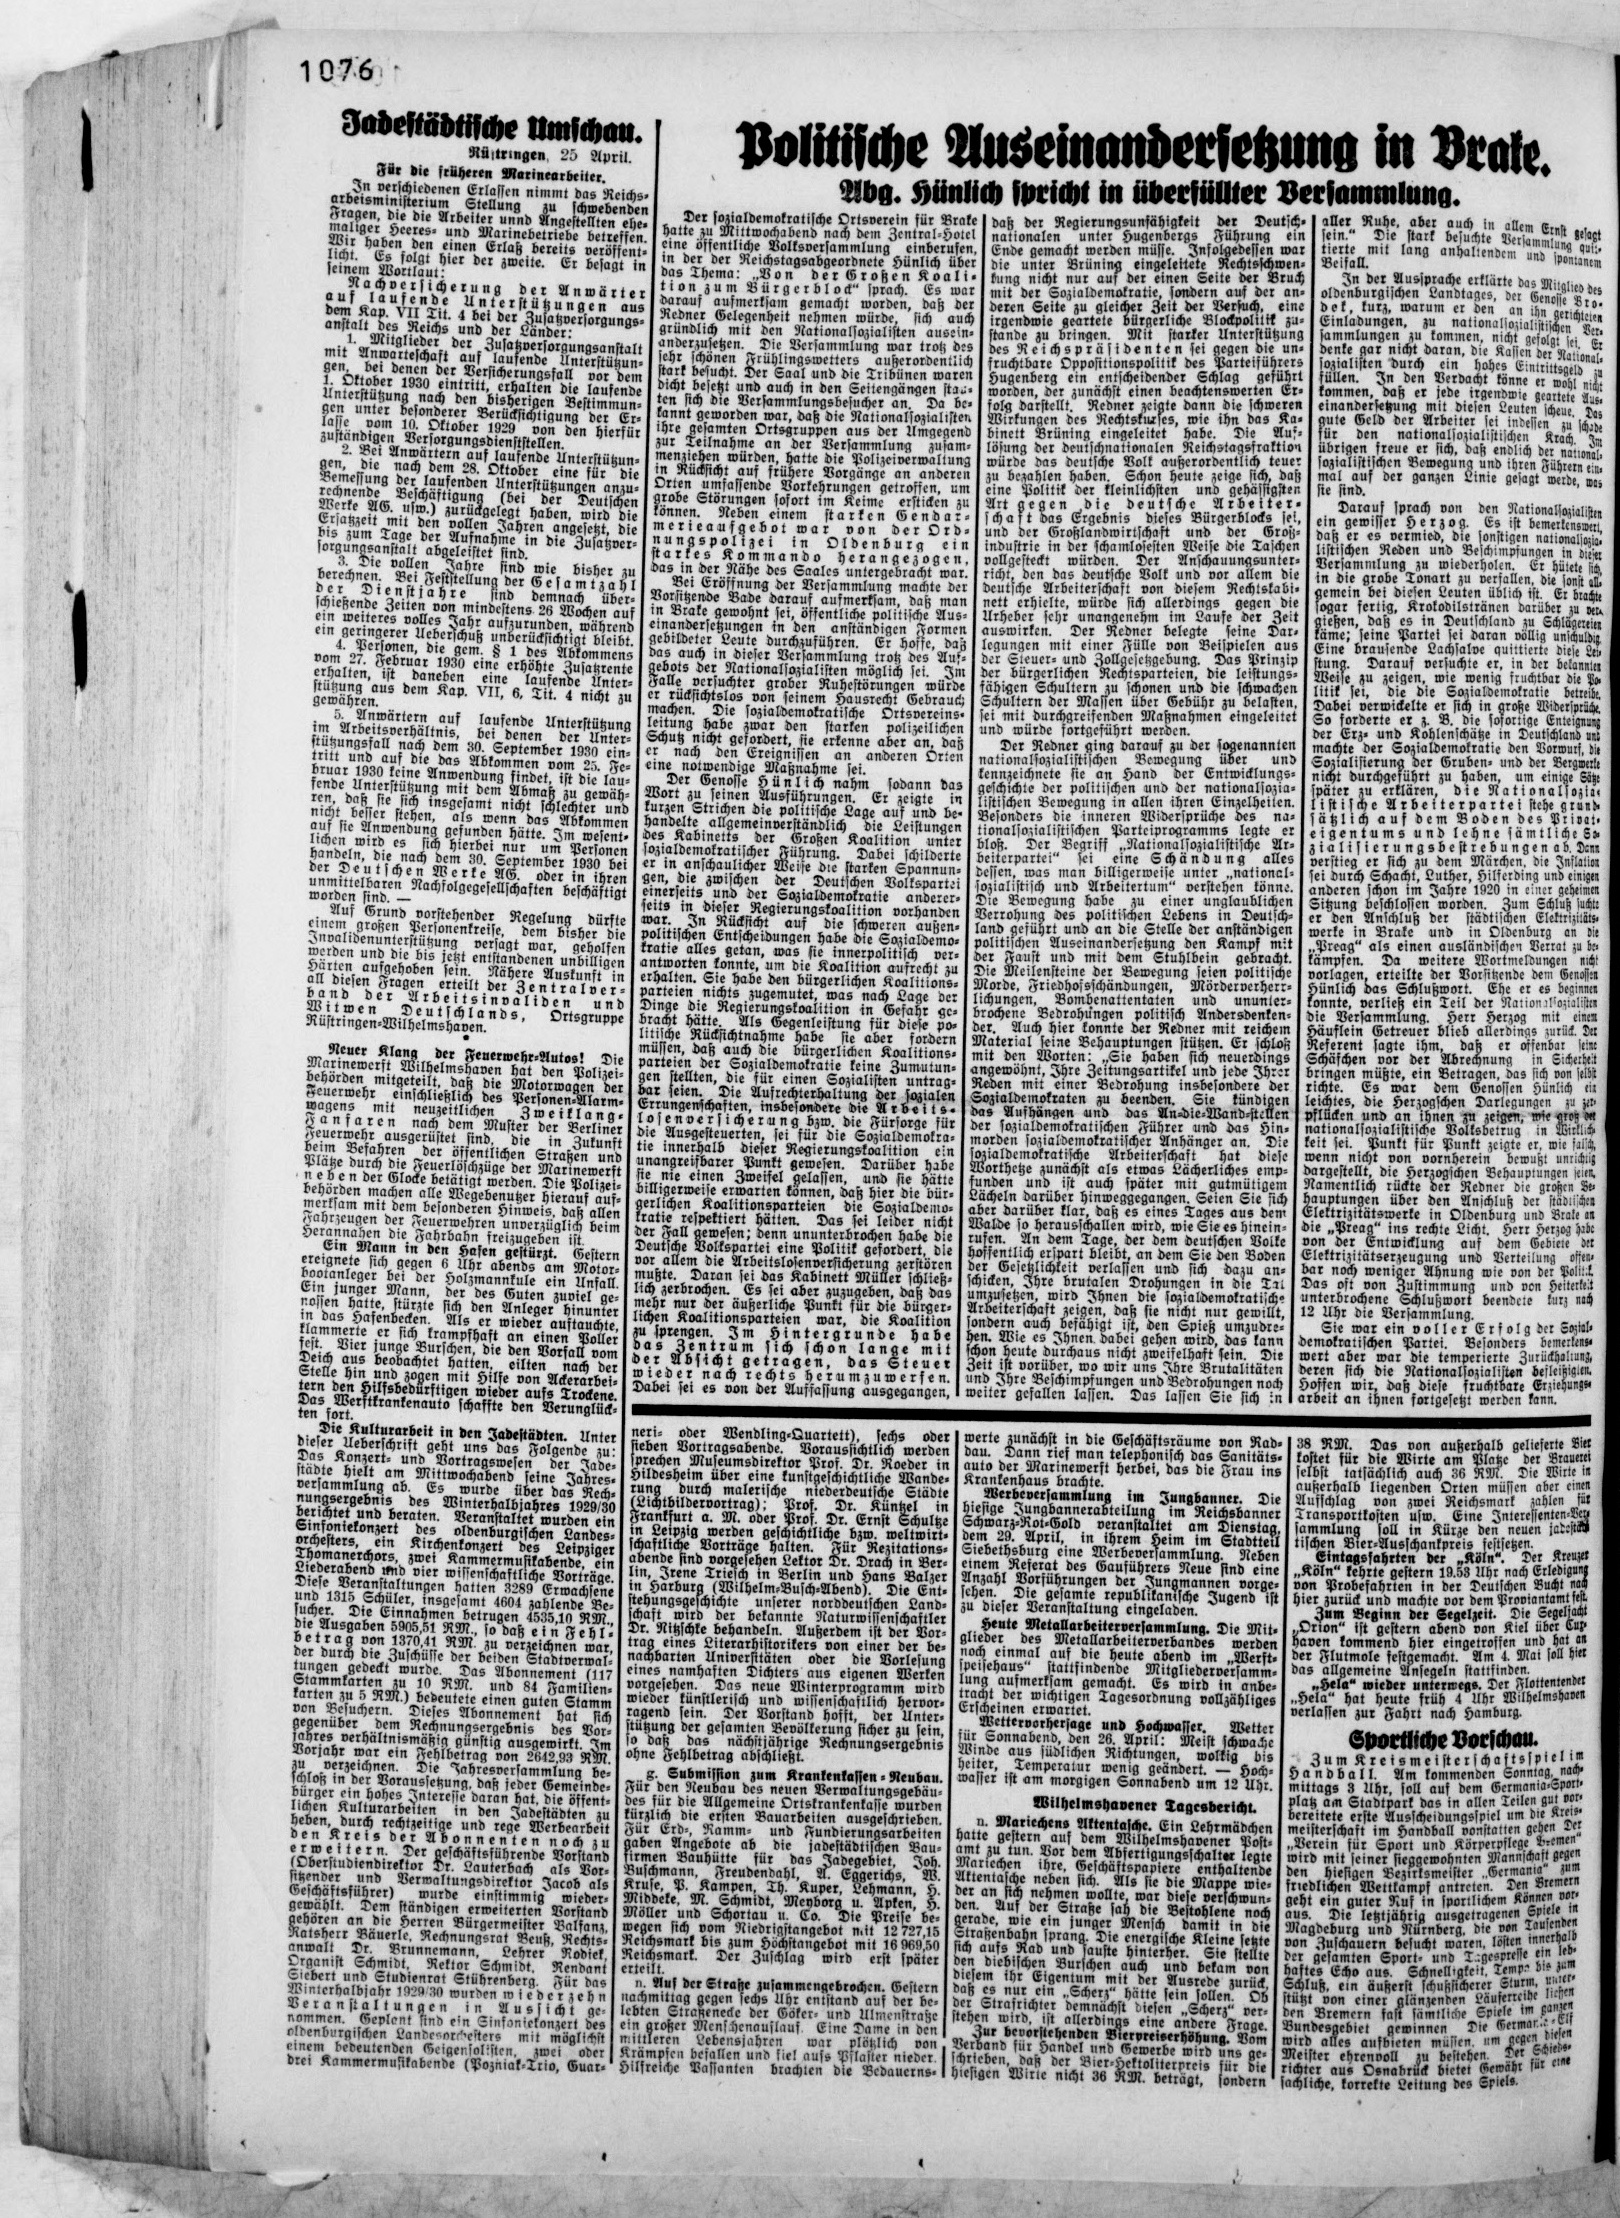 1076
Jadestädtische Umschau.
Rüstringen, 25 April.
Für die früheren Marinearbeiter.
In verschiedenen Erlassen nimmt das Reichs-
arbeitsministerium Stellung zu schwebenden
Fragen, die die Arbeiter unnd Angestellten ehe-
maliger Heeres- und Marinebetriebe betreffen.
Wir haben den einen Erlaß bereits veröffent-
licht. Es folgt hier der zweite. Er besagt in
seinem Wortlaut:
Nachversicherung der Anwärter
auf laufende Unterstützungen aus
dem Kap. VII Tit. 4 bei der Zusatzversorgungs-
anstalt des Reichs und der Länder:
1. Mitglieder der Zusatzversorgungsanstalt
mit Anwartschaft auf laufende Unterstützun-
gen, bei denen der Versicherungsfall vor dem
1. Oktober 1930 eintritt, erhalten die laufende
Unterstützung nach den bisherigen Bestimmun-
gen unter besonderer Berücksichtigung der Er-
lasse vom 10. Oktober 1929 von den hierfür
zuständigen Versorgungsdienststellen.
2. Bei Anwärtern auf laufende Unterstützun-
gen, die nach dem 28. Oktober eine für die
Bemessung der laufenden Unterstützungen anzu-
rechnende Beschäftigung (bei der Deutschen
Werke AG. usw.) zurückgelegt haben, wird die
Ersatzzeit mit den vollen Jahren angesetzt, die
bis zum Tage der Aufnahme in die Zusatzver-
sorgungsanstalt abgeleistet sind.
3. Die vollen Jahre sind wie bisher zu
berechnen. Bei Feststellung der Gesamtzahl
der Dienstjahre sind demnach über-
schießende Zeiten von mindestens 26 Wochen auf
ein weiteres volles Jahr aufzurunden, während
ein geringerer Ueberschuß unberücksichtigt bleibt.
4. Personen, die gem. § 1 des Abkommens
vom 27. Februar 1930 eine erhöhte Zusatzrente
erhalten, ist daneben eine laufende Unter-
stützung aus dem Kap. VII, 6, Tit. 4 nicht zu
gewähren.
5. Anwärtern auf laufende Unterstützung
im Arbeitsverhältnis, bei denen der Unter-
stützungsfall nach dem 30. September 1930 ein-
tritt und auf die das Abkommen vom 25. Fe-
bruar 1930 keine Anwendung findet, ist die lau-
fende Unterstützung mit dem Abmaß zu gewäh-
ren, daß sie sich insgesamt nicht schlechter und
nicht besser stehen, als wenn das Abkommen
auf sie Anwendung gefunden hätte. Im wesent-
lichen wird es sich hierbei nur um Personen
handeln, die nach dem 30. September 1930 bei
der Deutschen Werke AG. oder in ihren
unmittelbaren Nachfolgegesellschaften beschäftigt
worden sind. —
Auf Grund vorstehender Regelung dürfte
einem großen Personenkreise, dem bisher die
Invalidenunterstützung versagt war, geholfen
werden und die bis jetzt entstandenen unbilligen
Härten aufgehoben sein. Nähere Auskunft in
all diesen Fragen erteilt der Zentralver-
band der Arbeitsinvaliden und
Witwen Deutschlands, Ortsgruppe
Rüstringen-Wilhelmshaven.
Neuer Klang der Feuerwehr-Autos! Die
Marinewerft Wilhelmshaven hat den Polizei-
behörden mitgeteilt, daß die Motorwagen der
Feuerwehr einschließlich des Personen-Alarm-
wagens mit neuzeitlichen Zweiklang-
Fanfaren nach dem Muster der Berliner
Feuerwehr ausgerüstet sind, die in Zukunft
beim Befahren der öffentlichen Straßen und
Plätze durch die Feuerlöschzüge der Marinewerft
neben der Glocke betätigt werden. Die Polizei-
behörden machen alle Wegebenutzer hierauf auf-
merksam mit dem besonderen Hinweis, daß allen
Fahrzeugen der Feuerwehren unverzüglich beim
Herannahen die Fahrbahn freizugeben ist.
Ein Mann in den Hafen gestürzt. Gestern
ereignete sich gegen 6 Uhr abends am Motor-
bootanleger bei der Holzmannkule ein Unfall.
Ein junger Mann, der des Guten zuviel ge-
nossen hatte, stürzte sich den Anleger hinunter
in das Hafenbecken. Als er wieder auftauchte,
klammerte er sich krampfhaft an einen Poller
fest. Vier junge Burschen, die den Vorfall vom
Deich aus beobachtet hatten, eilten nach der
Stelle hin und zogen mit Hilfe von Ackerarbei-
tern den Hilfsbedürftigen wieder aufs Trockene.
Das Werftkrankenauto schaffte den Verunglück-
ten fort.
Die Kulturarbeit in den Jadestädten. Unter
dieser Ueberschrift geht uns das Folgende zu:
Das Konzert- und Vortragswesen der Jade-
städte hielt am Mittwochabend seine Jahres-
versammlung ab. Es wurde über das Rech-
nungsergebnis des Winterhalbjahres 1929/30
berichtet und beraten. Veranstaltet wurden ein
Sinfoniekonzert des oldenburgischen Landes-
orchesters, ein Kirchenkonzert des Leipziger
Thomanerchors, zwei Kammermusikabende, ein
Liederabend und vier wissenschaftliche Vorträge.
Diese Veranstaltungen hatten 3289 Erwachsene
und 1315 Schüler, insgesamt 4604 zahlende Be-
sucher. Die Einnahmen betrugen 4535,10 RM.,
die Ausgaben 5905,51 RM., so daß ein Fehl-
betrag von 1370,41 RM. zu verzeichnen war,
der durch die Zuschüsse der beiden Stadtverwal-
tungen gedeckt wurde. Das Abonnement (117
Stammkarten zu 10 RM. und 84 Familien-
karten zu 5 RM.) bedeutete einen guten Stamm
von Besuchern. Dieses Abonnement hat sich
gegenüber dem Rechnungsergebnis des Vor-
jahres verhältnismäßig günstig ausgewirkt. Im
Vorjahr war ein Fehlbetrag von 2642,93 RM.
zu verzeichnen. Die Jahresversammlung be-
schloß in der Voraussetzung, daß jeder Gemeinde-
bürger ein hohes Interesse daran hat, die öffent-
lichen Kulturarbeiten in den Jadestädten zu
heben, durch rechtzeitige und rege Werbearbeit
den Kreis der Abonnenten noch zu
erweitern. Der geschäftsführende Vorstand
(Oberstudiendirektor Dr. Lauterbach als Vor-
sitzender und Verwaltungsdirektor Jacob als
Geschäftsführer) wurde einstimmig wieder-
gewählt. Dem ständigen erweiterten Vorstand
gehören an die Herren Bürgermeister Balfanz,
Ratsherr Bäuerle, Rechnungsrat Beuß, Rechts-
anwalt Dr. Brunnemann, Lehrer Rodiek,
Organist Schmidt, Rektor Schmidt, Rendant
Siebert und Studienrat Stührenberg. Für das
Winterhalbjahr 1929/30 wurden wieder zehn
Veranstaltungen in Aussicht ge-
nommen. Geplant sind ein Sinfoniekonzert des
oldenburgischen Landesorchesters mit möglichst
einem bedeutenden Geigensolisten, zwei oder
drei Kammermusikabende (Pozniak-Trio, Guar-
Politische Auseinandersetzung in Brake.
Abg. Hünlich spricht in überfüllter Versammlung.
Der sozialdemokratische Ortsverein für Brake
hatte zu Mittwochabend nach dem Zentral-Hotel
eine öffentliche Volksversammlung einberufen,
in der der Reichstagsabgeordnete Hünlich über
das Thema: „Von der Großen Koali-
tion zum Bürgerblock“ sprach. Es war
darauf aufmerksam gemacht worden, daß der
Redner Gelegenheit nehmen würde, sich auch
gründlich mit den Nationalsozialisten ausein-
anderzusetzen. Die Versammlung war trotz des
sehr schönen Frühlingswetters außerordentlich
stark besucht. Der Saal und die Tribünen waren
dicht besetzt und auch in den Seitengängen stau-
ten sich die Versammlungsbesucher an. Da be-
kannt geworden war, daß die Nationalsozialisten
ihre gesamten Ortsgruppen aus der Umgegend
zur Teilnahme an der Versammlung zusam-
menziehen würden, hatte die Polizeiverwaltung
in Rücksicht auf frühere Vorgänge an anderen
Orten umfassende Vorkehrungen getroffen, um
grobe Störungen sofort im Keime ersticken zu
können. Neben einem starken Gendar-
merieaufgebot war von der Ord-
nungspolizei in Oldenburg ein
starkes Kommando herangezogen,
das in der Nähe des Saales untergebracht war.
Bei Eröffnung der Versammlung machte der
Vorsitzende Bade darauf aufmerksam, daß man
in Brake gewohnt sei, öffentliche politische Aus-
einandersetzungen in den anständigen Formen
gebildeter Leute durchzuführen. Er hoffe, daß
das auch in dieser Versammlung trotz des Auf-
gebots der Nationalsozialisten möglich sei. Im
Falle versuchter grober Ruhestörungen würde
er rücksichtslos von seinem Hausrecht Gebrauch
machen. Die sozialdemokratische Ortsvereins-
leitung habe zwar den starken polizeilichen
Schutz nicht gefordert, sie erkenne aber an, daß
er nach den Ereignissen an anderen Orten
eine notwendige Maßnahme sei.
Der Genosse Hünlich nahm sodann das
Wort zu seinen Ausführungen. Er zeigte in
kurzen Strichen die politische Lage auf und be-
handelte allgemeinverständlich die Leistungen
des Kabinetts der Großen Koalition unter
sozialdemokratischer Führung. Dabei schilderte
er in anschaulicher Weise die starken Spannun-
gen, die zwischen der Deutschen Volkspartei
einerseits und der Sozialdemokratie anderer-
seits in dieser Regierungskoalition vorhanden
war. In Rücksicht auf die schweren außen-
politischen Entscheidungen habe die Sozialdemo-
kratie alles getan, was sie innerpolitisch ver-
antworten konnte, um die Koalition aufrecht zu
erhalten. Sie habe den bürgerlichen Koalitions-
parteien nichts zugemutet, was nach Lage der
Dinge die Regierungskoalition in Gefahr ge-
bracht hätte. Als Gegenleistung für diese po-
litische Rücksichtnahme habe sie aber fordern
müssen, daß auch die bürgerlichen Koalitions-
parteien der Sozialdemokratie keine Zumutun-
gen stellten, die für einen Sozialisten untrag-
bar seien. Die Aufrechterhaltung der sozialen
Errungenschaften, insbesondere die Arbeits-
losenversicherung bzw. die Fürsorge für
die Ausgesteuerten, sei für die Sozialdemokra-
tie innerhalb dieser Regierungskoalition ein
unangreifbarer Punkt gewesen. Darüber habe
sie nie einen Zweifel gelassen, und sie hätte
billigerweise erwarten können, daß hier die bür-
gerlichen Koalitionsparteien die Sozialdemo-
kratie respektiert hätten. Das sei leider nicht
der Fall gewesen; denn ununterbrochen habe die
Deutsche Volkspartei eine Politik gefordert, die
vor allem die Arbeitslosenversicherung zerstören
mußte. Daran sei das Kabinett Müller schließ-
lich zerbrochen. Es sei aber zuzugeben, daß das
mehr nur der äußerliche Punkt für die bürger-
lichen Koalitionsparteien war, die Koalition
zu sprengen. Im Hintergrunde habe
das Zentrum sich schon lange mit
der Absicht getragen, das Steuer
wieder nach rechts herumzuwerfen.
Dabei sei es von der Auffassung ausgegangen,
daß der Regierungsunfähigkeit der Deutsch-
nationalen unter Hugenbergs Führung ein
Ende gemacht werden müsse. Infolgedessen war
die unter Brüning eingeleitete Rechtsschwen-
kung nicht nur auf der einen Seite der Bruch
mit der Sozialdemokratie, sondern auf der an-
deren Seite zu gleicher Zeit der Versuch, eine
irgendwie geartete bürgerliche Blockpolitik zu-
stande zu bringen. Mit starker Unterstützung
des Reichspräsidenten sei gegen die un-
fruchtbare Oppositionspolitik des Parteiführers
Hugenberg ein entscheidender Schlag geführt
worden, der zunächst einen beachtenswerten Er-
folg darstellt. Redner zeigte dann die schweren
Wirkungen des Rechtskurses, wie ihn das Ka-
binett Brüning eingeleitet habe. Die Auf-
lösung der deutschnationalen Reichstagsfraktion
würde das deutsche Volk außerordentlich teuer
zu bezahlen haben. Schon heute zeige sich, daß
eine Politik der kleinlichsten und gehässigsten
Art gegen die deutsche Arbeiter-
schaft das Ergebnis dieses Bürgerblocks sei,
und der Großlandwirtschaft und der Groß-
industrie in der schamlosesten Weise die Taschen
vollgesteckt würden. Der Anschauungsunter-
richt, den das deutsche Volk und vor allem die
deutsche Arbeiterschaft von diesem Rechtskabi-
nett erhielte, würde sich allerdings gegen die
Urheber sehr unangenehm im Laufe der Zeit
auswirken. Der Redner belegte seine Dar-
legungen mit einer Fülle von Beispielen aus
der Steuer- und Zollgesetzgebung. Das Prinzip
der bürgerlichen Rechtsparteien, die leistungs-
fähigen Schultern zu schonen und die schwachen
Schultern der Massen über Gebühr zu belasten,
sei mit durchgreifenden Maßnahmen eingeleitet
und würde fortgeführt werden.
Der Redner ging darauf zu der sogenannten
nationalsozialistischen Bewegung über und
kennzeichnete sie an Hand der Entwicklungs-
geschichte der politischen und der nationalsozia-
listischen Bewegung in allen ihren Einzelheiten.
Besonders die inneren Widersprüche des na-
tionalsozialistischen Parteiprogramms legte er
bloß. Der Begriff „Nationalsozialistische Ar-
beiterpartei“ sei eine Schändung alles
dessen, was man billigerweise unter „national-
sozialistisch und Arbeitertum“ verstehen könne.
Die Bewegung habe zu einer unglaublichen
Verrohung des politischen Lebens in Deutsch-
land geführt und an die Stelle der anständigen
politischen Auseinandersetzung den Kampf mit
der Faust und mit dem Stuhlbein gebracht.
Die Meilensteine der Bewegung seien politische
Morde, Friedhofsschändungen, Mörderverherr-
lichungen, Bombenattentaten und ununter-
brochene Bedrohungen politisch Andersdenken-
der. Auch hier konnte der Redner mit reichem
Material seine Behauptungen stützen. Er schloß
mit den Worten: „Sie haben sich neuerdings
angewöhnt, Ihre Zeitungsartikel und jede Ihrer
Reden mit einer Bedrohung insbesondere der
Sozialdemokraten zu beenden. Sie kündigen
das Aufhängen und das An-die-Wand-stellen
der sozialdemokratischen Führer und das Hin-
morden sozialdemokratischer Anhänger an. Die
sozialdemokratische Arbeiterschaft hat diese
Worthetze zunächst als etwas Lächerliches emp-
funden und ist auch später mit gutmütigem
Lächeln darüber hinweggegangen. Seien Sie sich
aber darüber klar, daß es eines Tages aus dem
Walde so herausschallen wird, wie Sie es hinein-
rufen. An dem Tage, der dem deutschen Volke
hoffentlich erspart bleibt, an dem Sie den Boden
der Gesetzlichkeit verlassen und sich dazu an-
schicken, Ihre brutalen Drohungen in die Tat
umzusetzen, wird Ihnen die sozialdemokratische
Arbeiterschaft zeigen, daß sie nicht nur gewillt,
sondern auch befähigt ist, den Spieß umzudre-
hen. Wie es Ihnen dabei gehen wird, das kann
schon heute durchaus nicht zweifelhaft sein. Die
Zeit ist vorüber, wo wir uns Ihre Brutalitäten
und Ihre Beschimpfungen und Bedrohungen noch
weiter gefallen lassen. Das lassen Sie sich in
aller Ruhe, aber auch in allem Ernst gesagt
sein.“ Die stark besuchte Versammlung quit-
tierte mit lang anhaltendem und spontanem
Beifall.
In der Aussprache erklärte das Mitglied des
oldenburgischen Landtages, der Genosse Bro-
dek, kurz, warum er den an ihn gerichteten
Einladungen, zu nationalsozialistischen Ver-
sammlungen zu kommen, nicht gefolgt sei. Er
denke gar nicht daran, die Kassen der National-
sozialisten durch ein hohes Eintrittsgeld zu
füllen. In den Verdacht könne er wohl nicht
kommen, daß er jede irgendwie geartete Aus-
einandersetzung mit diesen Leuten scheue. Das
gute Geld der Arbeiter sei indessen zu schade
für den nationalsozialistischen Krach. Im
übrigen freue er sich, daß endlich der national-
sozialistischen Bewegung und ihren Führern ein-
mal auf der ganzen Linie gesagt werde, was
sie sind.
Darauf sprach von den Nationalsozialisten
ein gewisser Herzog. Es ist bemerkenswert,
daß er es vermied, die sonstigen nationalsozia-
listischen Reden und Beschimpfungen in dieser
Versammlung zu wiederholen. Er hütete sich,
in die grobe Tonart zu verfallen, die sonst all-
gemein bei diesen Leuten üblich ist. Er brachte
sogar fertig, Krokodilstränen darüber zu ver-
gießen, daß es in Deutschland zu Schlägereien
käme; seine Partei sei daran völlig unschuldig.
Eine brausende Lachsalve quittierte diese Lei-
stung. Darauf versuchte er, in der bekannten
Weise zu zeigen, wie wenig fruchtbar die Po-
litik sei, die die Sozialdemokratie betreibe.
Dabei verwickelte er sich in große Widersprüche.
So forderte er z. B. die sofortige Enteignung
der Erz- und Kohlenschätze in Deutschland und
machte der Sozialdemokratie den Vorwurf, die
Sozialisierung der Gruben- und der Bergwerke
nicht durchgeführt zu haben, um einige Sätze
später zu erklären, die Nationalsozia-
listische Arbeiterpartei stehe grund-
sätzlich auf dem Boden des Privat-
eigentums und lehne sämtliche So-
zialisierungsbestrebungen ab. Dann
verstieg er sich zu dem Märchen, die Inflation
sei durch Schacht, Luther, Hilferding und einigen
anderen schon im Jahre 1920 in einer geheimen
Sitzung beschlossen worden. Zum Schluß suchte
er den Anschluß der städtischen Elektrizitäts-
werke in Brake und in Oldenburg an die
„Preag“ als einen ausländischen Verrat zu be-
kämpfen. Da weitere Wortmeldungen nicht
vorlagen, erteilte der Vorsitzende dem Genossen
Hünlich das Schlußwort. Ehe er es beginnen
konnte, verließ ein Teil der Nationalsozialisten
die Versammlung. Herr Herzog mit einem
Häuflein Getreuer blieb allerdings zurück. Der
Referent sagte ihm, daß er offenbar seine
Schäfchen vor der Abrechnung in Sicherheit
bringen müßte, ein Betragen, das sich von selbst
richte. Es war dem Genossen Hünlich ein
leichtes, die Herzogschen Darlegungen zu zer-
pflücken und an ihnen zu zeigen, wie groß der
nationalsozialistische Volksbetrug in Wirklich-
keit sei. Punkt für Punkt zeigte er, wie falsch,
wenn nicht von vornherein bewußt unrichtig
dargestellt, die Herzogschen Behauptungen seien.
Namentlich rückte der Redner die großen Be-
hauptungen über den Anschluß der städtischen
Elektrizitätswerke in Oldenburg und Brake an
die „Preag“ ins rechte Licht. Herr Herzog habe
von der Entwicklung auf dem Gebiete der
Elektrizitätserzeugung und Verteilung offen-
bar noch weniger Ahnung wie von der Politik.
Das oft von Zustimmung und von Heiterkeit
unterbrochene Schlußwort beendete kurz nach
12 Uhr die Versammlung.
Sie war ein voller Erfolg der Sozial-
demokratischen Partei. Besonders bemerkens-
wert aber war die temperierte Zurückhaltung,
deren sich die Nationalsozialisten befleißigten.
Hoffen wir, daß diese fruchtbare Erziehungs-
arbeit an ihnen fortgesetzt werden kann.
neri- oder Wendling-Quartett), sechs oder
sieben Vortragsabende. Voraussichtlich werden
sprechen Museumsdirektor Prof. Dr. Roeder in
Hildesheim über eine kunstgeschichtliche Wande-
rung durch malerische niederdeutsche Städte
(Lichtbildervortrag); Prof. Dr. Küntzel in
Frankfurt a. M. oder Prof. Dr. Ernst Schultze
in Leipzig werden geschichtliche bzw. weltwirt-
schaftliche Vorträge halten. Für Rezitations-
abende sind vorgesehen Lektor Dr. Drach in Ber-
lin, Irene Triesch in Berlin und Hans Balzer
in Harburg (Wilhelm-Busch-Abend). Die Ent-
stehungsgeschichte unserer norddeutschen Land-
schaft wird der bekannte Naturwissenschaftler
Dr. Nitzschke behandeln. Außerdem ist der Vor-
trag eines Literarhistorikers von einer der be-
nachbarten Universitäten oder die Vorlesung
eines namhaften Dichters aus eigenen Werken
vorgesehen. Das neue Winterprogramm wird
wieder künstlerisch und wissenschaftlich hervor-
ragend sein. Der Vorstand hofft, der Unter-
stützung der gesamten Bevölkerung sicher zu sein,
so daß das nächstjährige Rechnungsergebnis
ohne Fehlbetrag abschließt.
g. Submission zum Krankenkassen-Neubau.
Für den Neubau des neuen Verwaltungsgebäu-
des für die Allgemeine Ortskrankenkasse wurden
kürzlich die ersten Bauarbeiten ausgeschrieben.
Für Erd-, Ramm- und Fundierungsarbeiten
gaben Angebote ab die jadestädtischen Bau-
firmen Bauhütte für das Jadegebiet, Joh.
Buschmann, Freudendahl, A. Eggerichs, W.
Kruse, P. Kampen, Th. Kuper, Lehmann, H.
Middeke, M. Schmidt, Meyborg u. Apken, H.
Möller und Schortau u. Co. Die Preise be-
wegen sich vom Niedrigstangebot mit 12 727,15
Reichsmark bis zum Höchstangebot mit 16 969,50
Reichsmark. Der Zuschlag wird erst später
erteilt.
n. Auf der Straße zusammengebrochen. Gestern
nachmittag gegen sechs Uhr entstand auf der be-
lebten Straßenecke der Göker- und Ulmenstraße
ein großer Menschenauflauf. Eine Dame in den
mittleren Lebensjahren war plötzlich von
Krämpfen befallen und fiel aufs Pflaster nieder.
Hilfreiche Passanten brachten die Bedauerns-
werte zunächst in die Geschäftsräume von Rad-
dau. Dann rief man telephonisch das Sanitäts-
auto der Marinewerft herbei, das die Frau ins
Krankenhaus brachte.
Werbeversammlung im Jungbanner. Die
hiesige Jungbannerabteilung im Reichsbanner
Schwarz-Rot-Gold veranstaltet am Dienstag,
dem 29. April, in ihrem Heim im Stadtteil
Siebethsburg eine Werbeversammlung. Neben
einem Referat des Gauführers Neue sind eine
Anzahl Vorführungen der Jungmannen vorge-
sehen. Die gesamte republikanische Jugend ist
zu dieser Veranstaltung eingeladen.
Heute Metallarbeiterversammlung. Die Mit-
glieder des Metallarbeiterverbandes werden
noch einmal auf die heute abend im „Werft-
speisehaus“ stattfindende Mitgliederversamm-
lung aufmerksam gemacht. Es wird in anbe-
tracht der wichtigen Tagesordnung vollzähliges
Erscheinen erwartet.
Wettervorhersage und Hochwasser. Wetter
für Sonnabend, den 26. April: Meist schwache
Winde aus südlichen Richtungen, wolkig bis
heiter, Temperatur wenig geändert. — Hoch-
wasser ist am morgigen Sonnabend um 12 Uhr.
Wilhelmshavener Tagesbericht.
n. Mariechens Aktentasche. Ein Lehrmädchen
hatte gestern auf dem Wilhelmshavener Post-
amt zu tun. Vor dem Abfertigungsschalter legte
Mariechen ihre, Geschäftspapiere enthaltende
Aktentasche neben sich. Als sie die Mappe wie-
der an sich nehmen wollte, war diese verschwun-
den. Auf der Straße sah die Bestohlene noch
gerade, wie ein junger Mensch damit in die
Straßenbahn sprang. Die energische Kleine setzte
sich aufs Rad und sauste hinterher. Sie stellte
den diebischen Burschen auch und bekam von
diesem ihr Eigentum mit der Ausrede zurück,
daß es nur ein „Scherz“ hätte sein sollen. Ob
der Strafrichter demnächst diesen „Scherz“ ver-
stehen wird, ist allerdings eine andere Frage.
Zur bevorstehenden Bierpreiserhöhung. Vom
Verband für Handel und Gewerbe wird uns ge-
schrieben, daß der Bier-Hektoliterpreis für die
hiesigen Wirte nicht 36 RM. beträgt, sondern
38 RM. Das von außerhalb gelieferte Bier
kostet für die Wirte am Platze der Brauerei
selbst tatsächlich auch 36 RM. Die Wirte in
außerhalb liegenden Orten müssen aber einen
Aufschlag von zwei Reichsmark zahlen für
Transportkosten usw. Eine Interessenten-Ver-
sammlung soll in Kürze den neuen jadestäd-
tischen Bier-Ausschankpreis festsetzen.
Eintagsfahrten der „Köln“. Der Kreuzer
„Köln“ kehrte gestern 19.53 Uhr nach Erledigung
von Probefahrten in der Deutschen Bucht nach
hier zurück und machte vor dem Proviantamt fest.
Zum Beginn der Segelzeit. Die Segeljacht
„Orion“ ist gestern abend von Kiel über Cux-
haven kommend hier eingetroffen und hat an
der Flutmole festgemacht. Am 4. Mai soll hier
das allgemeine Ansegeln stattfinden.
„Hela“ wieder unterwegs. Der Flottentender
„Hela“ hat heute früh 4 Uhr Wilhelmshaven
verlassen zur Fahrt nach Hamburg.
Sportliche Vorschau.
Zum Kreismeisterschaftsspiel im
Handball. Am kommenden Sonntag, nach-
mittags 3 Uhr, soll auf dem Germania-Sport-
platz am Stadtpark das in allen Teilen gut vor-
bereitete erste Ausscheidungsspiel um die Kreis-
meisterschaft im Handball vonstatten gehen. Der
„Verein für Sport und Körperpflege Bremen“
wird mit seiner sieggewohnten Mannschaft gegen
den hiesigen Bezirksmeister „Germania“ zum
friedlichen Wettkampf antreten. Den Bremern
geht ein guter Ruf in sportlichem Können vor-
aus. Die letztjährig ausgetragenen Spiele in
Magdeburg und Nürnberg, die von Tausenden
von Zuschauern besucht waren, lösten innerhalb
der gesamten Sport- und Tagespresse ein leb-
haftes Echo aus. Schnelligkeit, Tempo bis zum
Schluß, ein äußerst schußsicherer Sturm, unter-
stützt von einer glänzenden Läuferreihe ließen
den Bremern fast sämtliche Spiele im ganzen
Bundesgebiet gewinnen. Die Germania-Elf
wird alles aufbieten müssen, um gegen diesen
Meister ehrenvoll zu bestehen. Der Schieds-
richter aus Osnabrück bietet Gewähr für eine
sachliche, korrekte Leitung des Spiels.